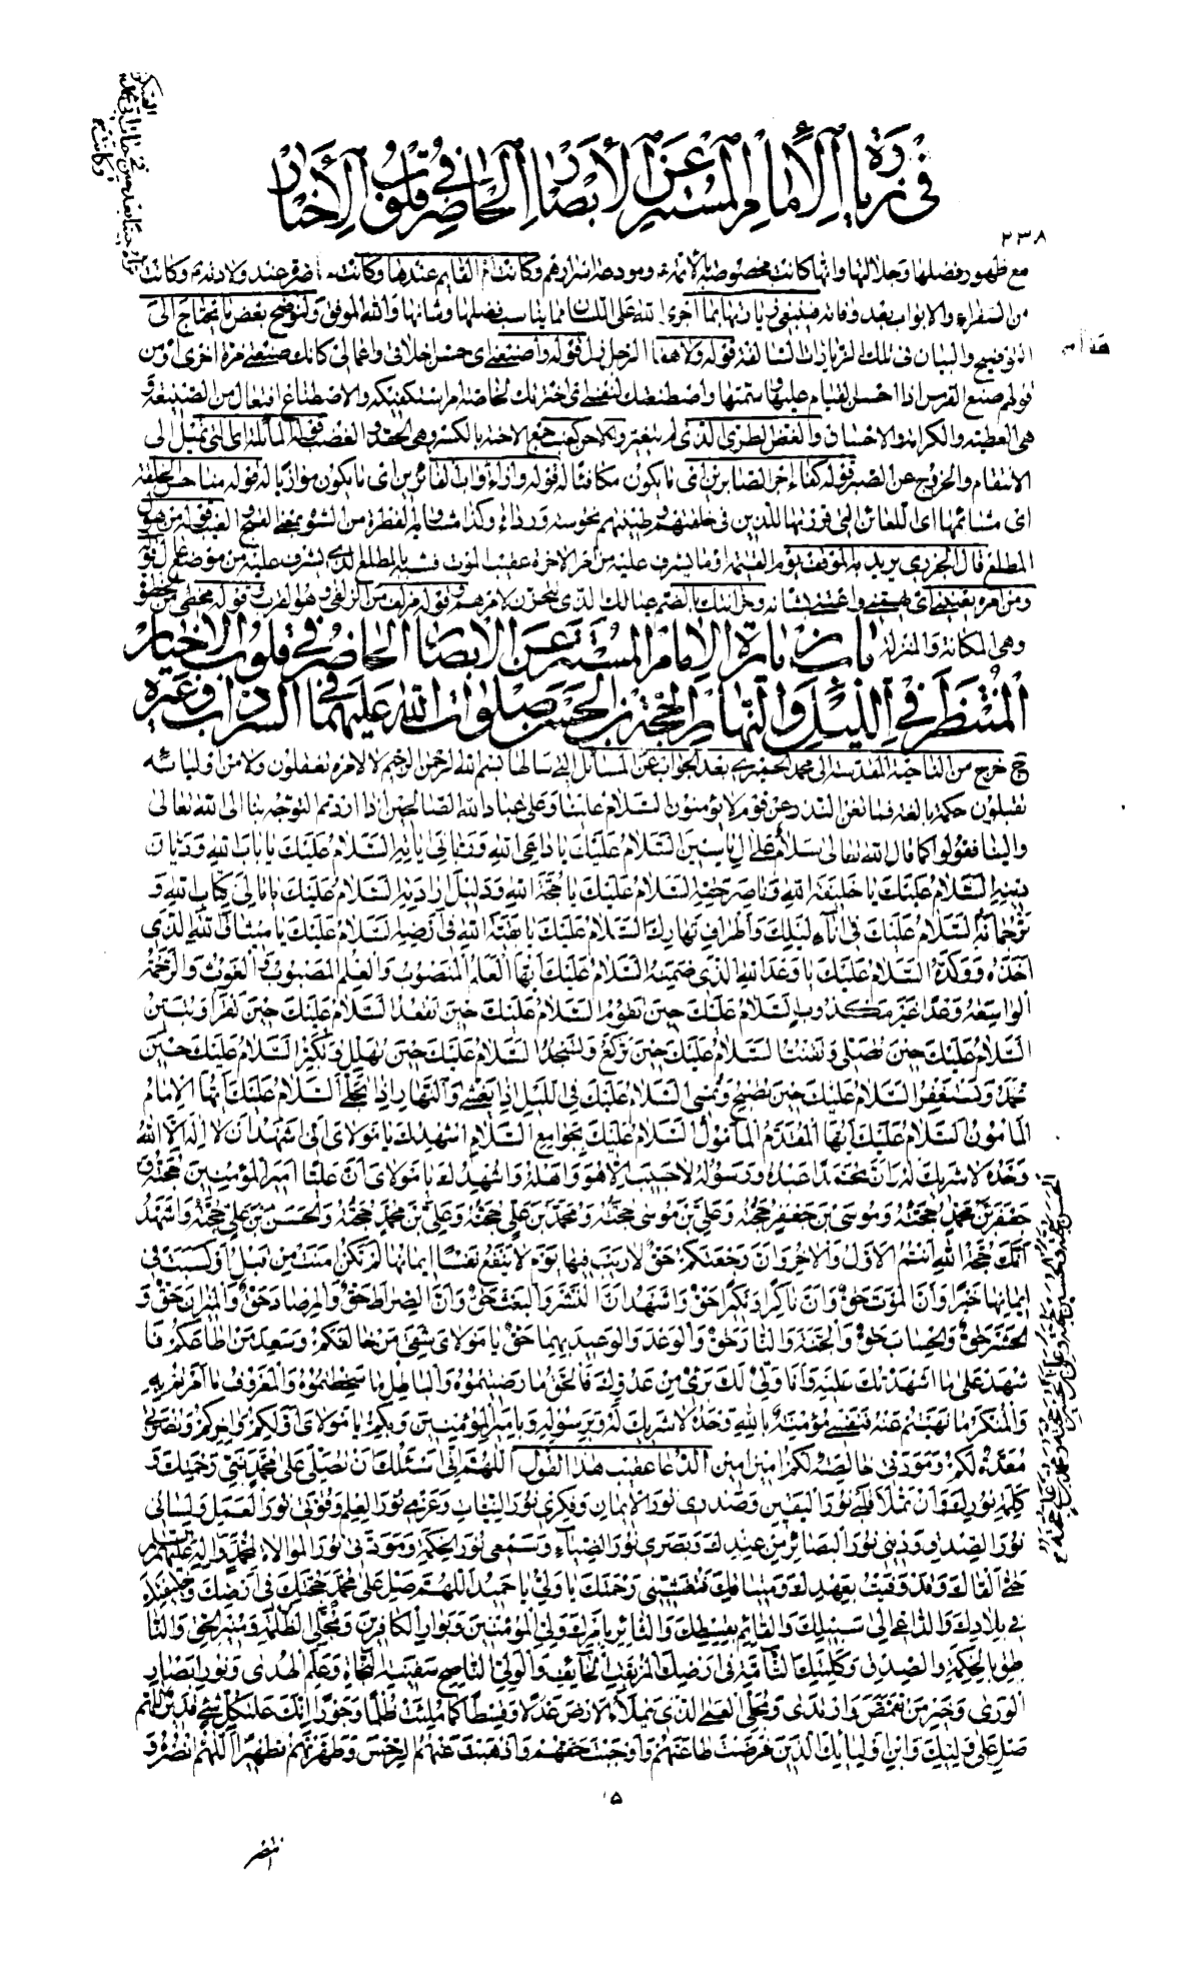 في زيارة الإمام المستتر عن الأبصار الحاضر في قلوب الأخيار
٢٣٨
مع ظهور فضلها وجلالتها وانها كانت مخصوصة بالائمة ومودعة اسرارهم وكانت ام القايم عندها وكانت حاضرة عند ولادته وكانت
من السفراء والابواب بعد وفاته فينبغي زيارتها بما اجرى الله على اللسان مما يناسب فضلها وشانها والله الموفق ولنوضح بعض ما يحتاج الى
التوضيح والبيان في تلك الزيارات السالفة قوله ولاهفا الرجل زل قوله واصطنعني اي حسن اخلاقي واعمالي كانك صنعتني مرة اخرى او من
قولهم صنع الفرس اذا احسن القيام عليها وسمنها واصطنعتك لنفسي اي اخترتك لخاصة امر استكفيكه والاصطناع افتعال من الصنيعة و
هي العطية والكرامة والاحسان والغض الطري الذي لم يتغير والاحن كعنب جمع الاحنة بالكسر وهي الحقد والغضب قوله المائلة اي التي تميل الى
الانتقام والخروج عن الصبر قوله كفاء اجر الصابرين اي ما يكون مكافئا له قوله وازاء ثواب الفائزين اي ما يكون موازيا له قوله
المطلع قال الجزري يريد به الموقف يوم القيمة او ما يشرف عليه من امر الاخرة عقيب الموت فشبهه بالمطلع الذي يشرف عليه من موضع عال قوله
وهي المكانة والمنزلة باب زيارة الإمام المستتر عن الأبصار الحاضر في قلوب الأخيار
المنتظر في الليل والنهار الحجة بن الحسن صلوات الله عليهما في السرداب وغيره
ج خرج من الناحية المقدسة الى محمد الحميري بعد الجواب عن المسائل التي سالها بسم الله الرحمن الرحيم لا لامره تعقلون ولا من اوليائه
تقبلون حكمة بالغة فما تغن النذر عن قوم لا يؤمنون السلام علينا وعلى عباد الله الصالحين اذا اردتم التوجه بنا الى الله تعالى
والينا فقولوا كما قال الله تعالى سلام على ال ياسين السلام عليك يا داعي الله ورباني اياته السلام عليك يا باب الله وديان
دينه السلام عليك يا خليفة الله وناصر حقه السلام عليك يا حجة الله ودليل ارادته السلام عليك يا تالي كتاب الله و
ترجمانه السلام عليك في اناء ليلك واطراف نهارك السلام عليك يا بقية الله في ارضه السلام عليك يا ميثاق الله الذي
اخذه ووكده السلام عليك يا وعد الله الذي ضمنه السلام عليك ايها العلم المنصوب والعلم المصبوب والغوث والرحمة
الواسعة وعدا غير مكذوب السلام عليك حين تقوم السلام عليك حين تقعد السلام عليك حين تقرأ وتبين
السلام عليك حين تصلي وتقنت السلام عليك حين تركع وتسجد السلام عليك حين تهلل وتكبر السلام عليك حين
تحمد وتستغفر السلام عليك حين تصبح وتمسي السلام عليك في الليل اذا يغشى والنهار اذا تجلى السلام عليك ايها الامام
المامون السلام عليك ايها المقدم المامول السلام عليك بجوامع السلام اشهدك يا مولاي اني اشهد ان لا اله الا الله
وحده لا شريك له وان محمدا عبده ورسوله لا حبيب الا هو واهله واشهدك يا مولاي ان عليا امير المؤمنين حجته و
جعفر بن محمد حجته وموسى بن جعفر حجته وعلي بن موسى حجته ومحمد بن علي حجته وعلي بن محمد حجته والحسن بن علي حجته واشهد
انك حجة الله انتم الاول والاخر وان رجعتكم حق لا ريب فيها يوم لا ينفع نفسا ايمانها لم تكن امنت من قبل او كسبت في
ايمانها خيرا وان الموت حق وان ناكرا ونكيرا حق واشهد ان النشر والبعث حق وان الصراط حق والمرصاد حق والميزان حق و
الحشر حق والحساب حق والجنة والنار حق والوعد والوعيد بهما حق يا مولاي شقي من خالفكم وسعد من اطاعكم فا
شهد على ما اشهدتك عليه وانا ولي لك بري من عدوك فالحق ما رضيتموه والباطل ما سخطتموه والمعروف ما امرتم به
والمنكر ما نهيتم عنه فنفسي مؤمنة بالله وحده لا شريك له وبرسوله وبامير المؤمنين وبكم يا مولاي اولكم واخركم ونصرتي
معدة لكم ومودتي خالصة لكم امين امين الدعا عقيب هذا القول اللهم اني اسئلك ان تصلي على محمد نبي رحمتك و
كلمة نورك وان تملأ قلبي نور اليقين وصدري نور الايمان وفكري نور النيات وعزمي نور العلم وقوتي نور العمل ولساني
نور الصدق وديني نور البصائر من عندك وبصري نور الضياء وسمعي نور الحكمة ومودتي نور الموالاة لمحمد واله عليهم السلام
حتى القاك وقد وفيت بعهدك وميثاقك فتغشيني رحمتك يا ولي يا حميد اللهم صل على محمد حجتك في ارضك وخليفتك
في بلادك والداعي الى سبيلك والقائم بقسطك والثائر بامرك ولي المؤمنين وبوار الكافرين ومجلي الظلمة ومنير الحق والنا
طق بالحكمة والصدق وكلمتك التامة في ارضك المرتقب الخائف والولي الناصح سفينة النجاة وعلم الهدى ونور ابصار
الورى وخير من تقمص وارتدى ومجلي العمى الذي يملأ الارض عدلا وقسطا كما ملئت ظلما وجورا انك على كل شيء قدير اللهم
صل على وليك وابن اوليائك الذين فرضت طاعتهم واوجبت حقهم واذهبت عنهم الرجس وطهرتهم تطهيرا اللهم انصره و
انتصر